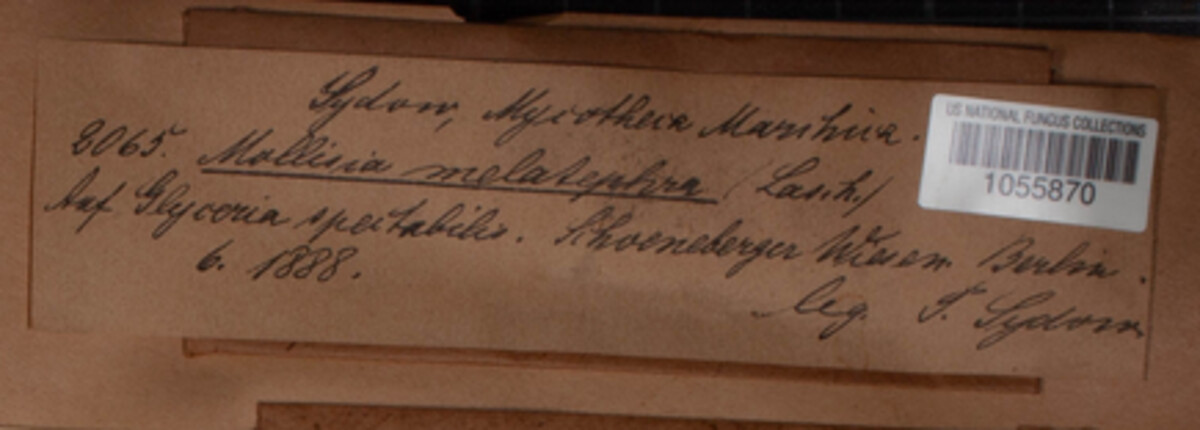 Sydow, Mycotheca Marchica.
2065. Mollisia melatephra (Lasch.)
Auf Glyceria spectabilis. Schoeneberger Wiesen Berlin.
6. 1888.
leg. P. Sydow.
US NATIONAL FUNGUS COLLECTIONS
1055870